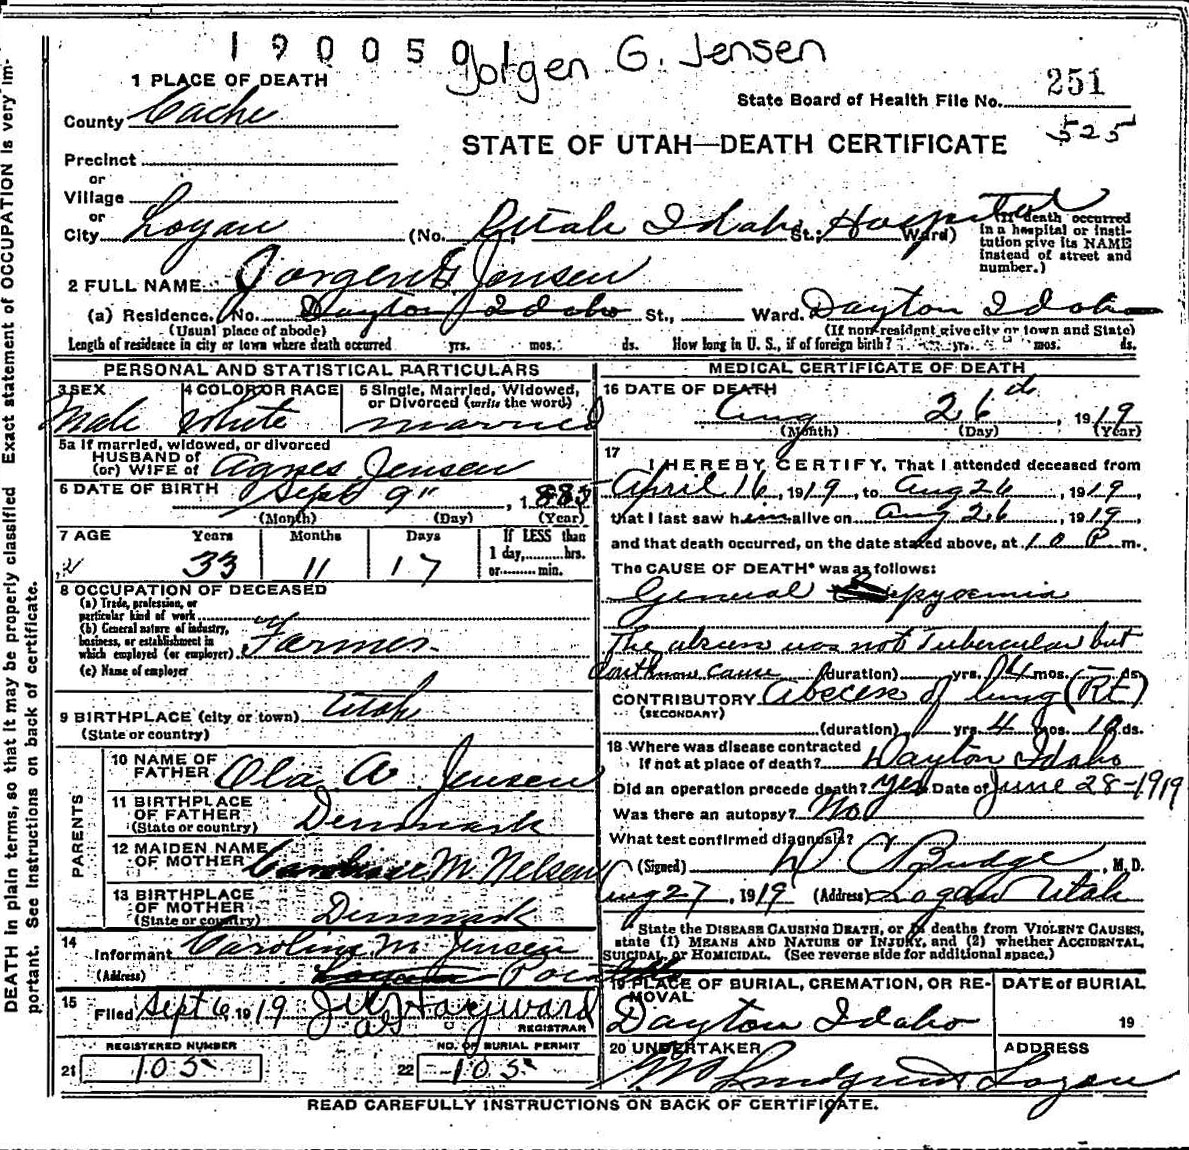 1 9 0 0 5 0 9
Jorgen G. Jensen
1 PLACE OF DEATH
County Cache
State Board of Health File No. 251
525
STATE OF UTAH—DEATH CERTIFICATE
Precinct
or
Village
or
City Logan (No. Utah Idaho St.; Hospital Ward)
(If death occurred in a hospital or institution give its NAME instead of street and number.)
2 FULL NAME Jorgen G Jensen
(a) Residence. No. Dayton Idaho St., Ward. Dayton Idaho
(Usual place of abode) (If non-resident give city or town and State)
Length of residence in city or town where death occurred yrs. mos. ds. How long in U. S., if of foreign birth? yrs. mos. ds.
PERSONAL AND STATISTICAL PARTICULARS
3 SEX 4 COLOR OR RACE 5 Single, Married, Widowed, or Divorced (write the word)
Male White Married
5a If married, widowed, or divorced
HUSBAND of
(or) WIFE of Agnes Jensen
6 DATE OF BIRTH Sept 9", 1885
(Month) (Day) (Year)
7 AGE Years Months Days If LESS than
1 day, hrs.
or min.
33 11 17
8 OCCUPATION OF DECEASED
(a) Trade, profession, or
particular kind of work
(b) General nature of industry,
business, or establishment in
which employed (or employer) Farmer
(c) Name of employer
9 BIRTHPLACE (city or town) Utah
(State or country)
PARENTS
10 NAME OF
FATHER Ola A Jensen
11 BIRTHPLACE
OF FATHER
(State or country) Denmark
12 MAIDEN NAME
OF MOTHER M. Nelsen
13 BIRTHPLACE
OF MOTHER
(State or country) Denmark
14
Informant Caroline M Jensen
(Address)
15
Filed Sept 6, 1919 Hayward
REGISTRAR
REGISTERED NUMBER NO. OF BURIAL PERMIT
21 105 22 105
MEDICAL CERTIFICATE OF DEATH
16 DATE OF DEATH
Aug 26th, 1919
(Month) (Day) (Year)
17
I HEREBY CERTIFY, That I attended deceased from
April 16, 1919, to Aug 26, 1919,
that I last saw him alive on Aug 26, 1919,
and that death occurred, on the date stated above, at 10 P m.
The CAUSE OF DEATH* was as follows:
General pyoemia
The abscess was not Tubercular but
dont know cause (duration) yrs. 4 mos. ds.
CONTRIBUTORY Abscess of lung (Rt)
(SECONDARY)
(duration) yrs. 4 mos. 10 ds.
18 Where was disease contracted
If not at place of death? Dayton Idaho
Did an operation precede death? yes Date of June 28-1919
Was there an autopsy? No
What test confirmed diagnosis?
(Signed) D C Budge, M. D.
Aug 27, 1919 (Address) Logan Utah
* State the DISEASE CAUSING DEATH, or in deaths from VIOLENT CAUSES,
state (1) MEANS AND NATURE OF INJURY, and (2) whether ACCIDENTAL,
SUICIDAL, or HOMICIDAL. (See reverse side for additional space.)
19 PLACE OF BURIAL, CREMATION, OR REMOVAL DATE of BURIAL
Dayton Idaho 19
20 UNDERTAKER ADDRESS
Lindquist Logan
READ CAREFULLY INSTRUCTIONS ON BACK OF CERTIFICATE.
DEATH in plain terms, so that it may be properly classified Exact statement of OCCUPATION is very im-
portant. See Instructions on back of certificate.